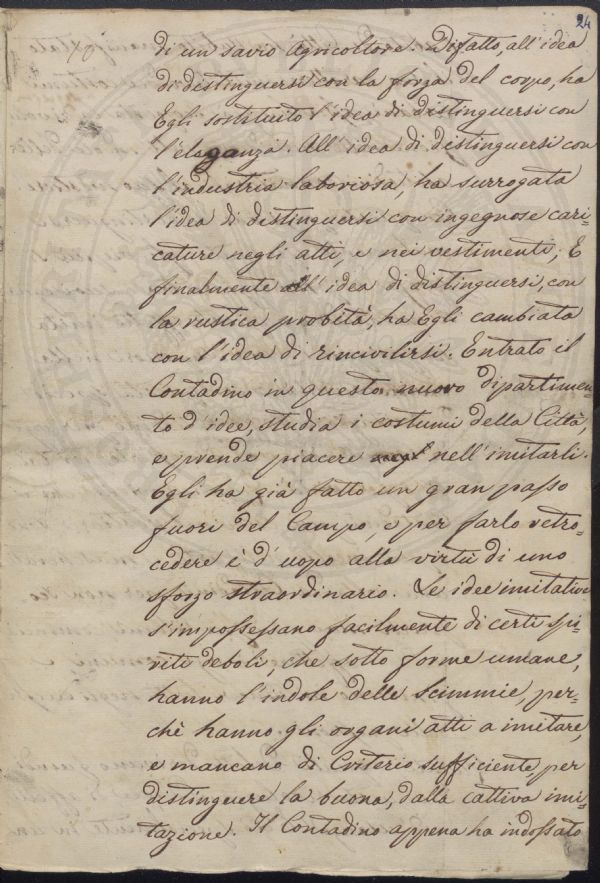 24
di un savio Agricoltore. Difatto, all'idea
di distinguersi con la forza del corpo, ha
Egli sostituito l'idea di distinguersi con
l'eleganza. All'idea di distinguersi con
l'industria laboriosa, ha surrogata
l'idea di distinguersi con ingegnose cari=
cature negli atti, e nei vestimenti; E
finalmente all'idea di distinguersi, con
la rustica probità, ha Egli cambiata
con l'idea di rincivilirsi. Entrato il
Contadino in questo nuovo dipartimen=
to d'idee, studia i costumi della Città,
e prende piacere nell'imitarli.
Egli ha già fatto un gran passo
fuori del Campo, e per farlo retro=
cedere è d'uopo alla virtù di uno
sforzo straordinario. Le idee imitative
s'impossessano facilmente di certi spi=
riti deboli, che sotto forme umane,
hanno l'indole delle Scimmie, per=
chè hanno gli organi atti a imitare,
e mancano di Criterio sufficiente per
distinguere la buona, dalla cattiva imi=
tazione. Il Contadino appena ha indossato